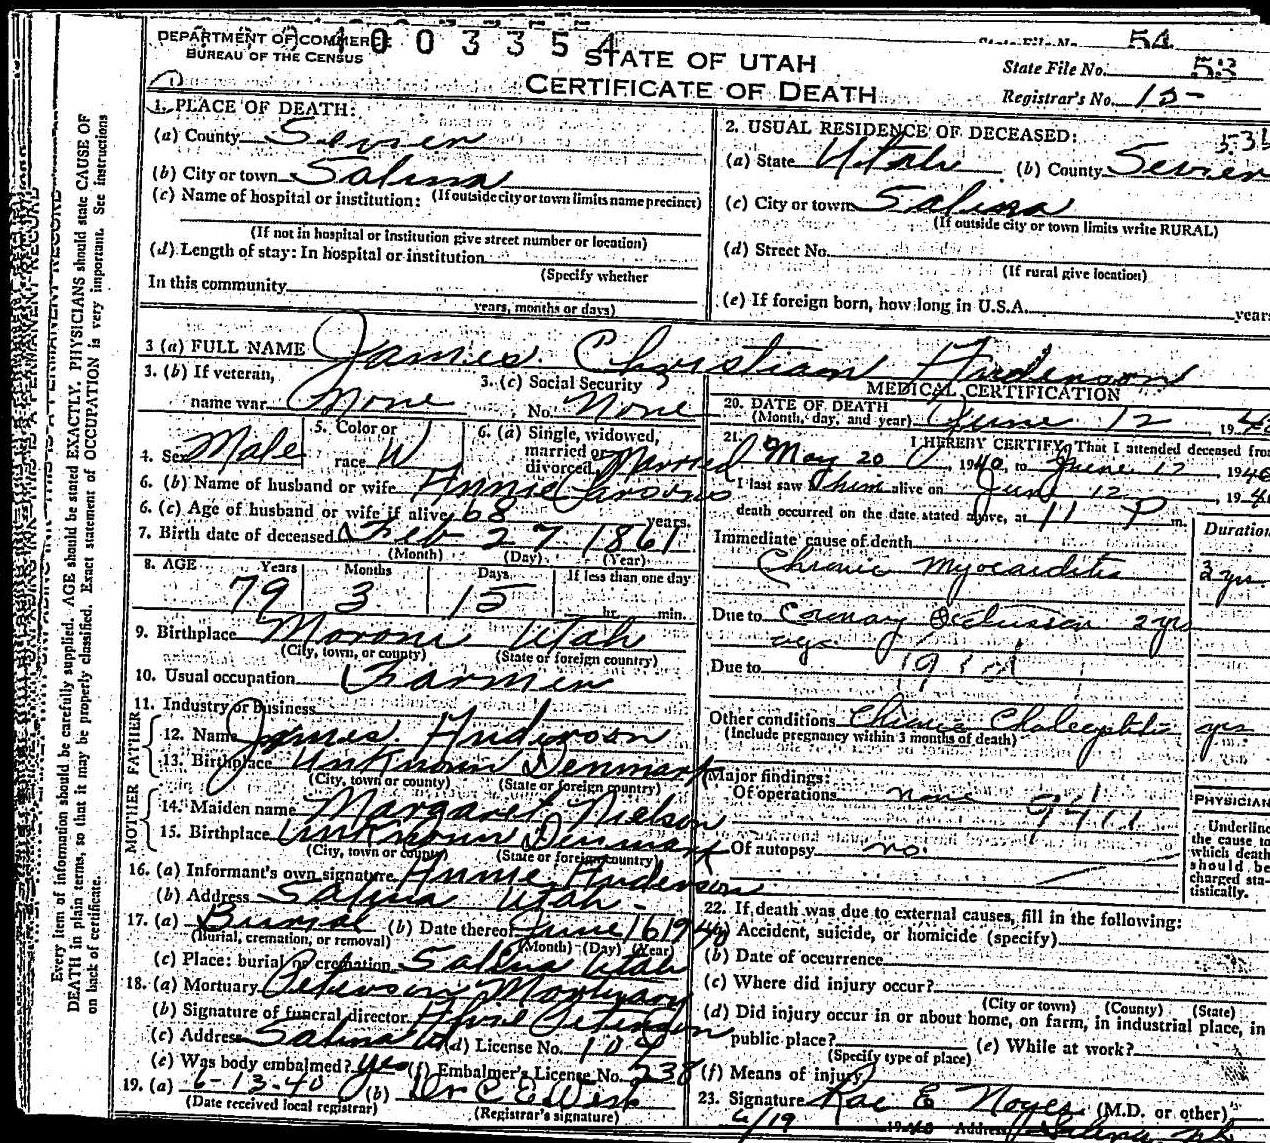 DEPARTMENT OF COMMERCE
BUREAU OF THE CENSUS
4 0 0 3 3 5 4
STATE OF UTAH
CERTIFICATE OF DEATH
State File No. 54
State File No. 53
Registrar's No. 15-
1. PLACE OF DEATH:
(a) County Sevier
(b) City or town Salina
(c) Name of hospital or institution: (If outside city or town limits name precinct)
(If not in hospital or institution give street number or location)
(d) Length of stay: In hospital or institution
(Specify whether
In this community
years, months or days)
2. USUAL RESIDENCE OF DECEASED:
(a) State Utah (b) County Sevier
(c) City or town Salina
(If outside city or town limits write RURAL)
(d) Street No.
(If rural give location)
(e) If foreign born, how long in U.S.A. years
3 (a) FULL NAME James Christian Anderson
3. (b) If veteran,
name war None
3. (c) Social Security
No. None
4. Sex Male
5. Color or
race W
6. (a) Single, widowed,
married or
divorced Married
6. (b) Name of husband or wife Annie
6. (c) Age of husband or wife if alive 68 years.
7. Birth date of deceased Feb 27 1861
(Month) (Day) (Year)
8. AGE Years Months Days If less than one day
79 3 15 hr. min.
9. Birthplace Moroni Utah
(City, town, or county) (State or foreign country)
10. Usual occupation Farmer
11. Industry or Business
FATHER
12. Name James Anderson
13. Birthplace Unknown Denmark
(City, town or county) (State or foreign country)
MOTHER
14. Maiden name Margaret Nielson
15. Birthplace Unknown Denmark
(City, town or county) (State or foreign country)
16. (a) Informant's own signature Annie Anderson
(b) Address Salina Utah-
17. (a) Burial (b) Date thereof June 16 1940
(Burial, cremation, or removal) (Month) (Day) (Year)
(c) Place: burial or cremation Salina Utah
18. (a) Mortuary Peterson Mortuary
(b) Signature of funeral director
(c) Address Salina (d) License No. 107
(e) Was body embalmed? yes (f) Embalmer's License No. 238
19. (a) 6-13-40 (b) Dr C E West
(Date received local registrar) (Registrar's signature)
MEDICAL CERTIFICATION
20. DATE OF DEATH
(Month, day, and year) June 12 1940
21. I HEREBY CERTIFY, That I attended deceased from
May 20, 1940, to June 12 1940
I last saw him alive on June 12, 1940
death occurred on the date stated above, at 11 P m.
Duration
Immediate cause of death
Chronic Myocarditis
Due to Coronary Occlusion 2 yrs
Due to
Other conditions Chronic
(Include pregnancy within 3 months of death)
yrs
Major findings:
Of operations none
Of autopsy no
PHYSICIAN
Underline
the cause to
which death
should be
charged sta-
tistically.
22. If death was due to external causes, fill in the following:
(a) Accident, suicide, or homicide (specify)
(b) Date of occurrence
(c) Where did injury occur?
(City or town) (County) (State)
(d) Did injury occur in or about home, on farm, in industrial place, in
public place? (e) While at work?
(Specify type of place)
(f) Means of injury
23. Signature Rae E Noyes (M.D. or other)
6/19 1940 Address Salina
Every item of information should be carefully supplied. AGE should be stated EXACTLY. PHYSICIANS should state CAUSE OF
DEATH in plain terms, so that it may be properly classified. Exact statement of OCCUPATION is very important. See instructions
on back of certificate.